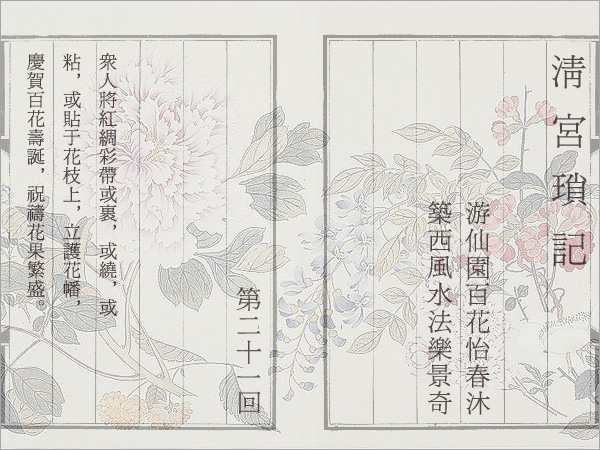 清宮瑣記
游仙園百花怡春沐
築西風水法樂景奇
第二十一回
衆人將紅綢彩帶或裹，或繞，或
粘，或貼于花枝上，立護花幡，
慶賀百花壽誕，祝禱花果繁盛。